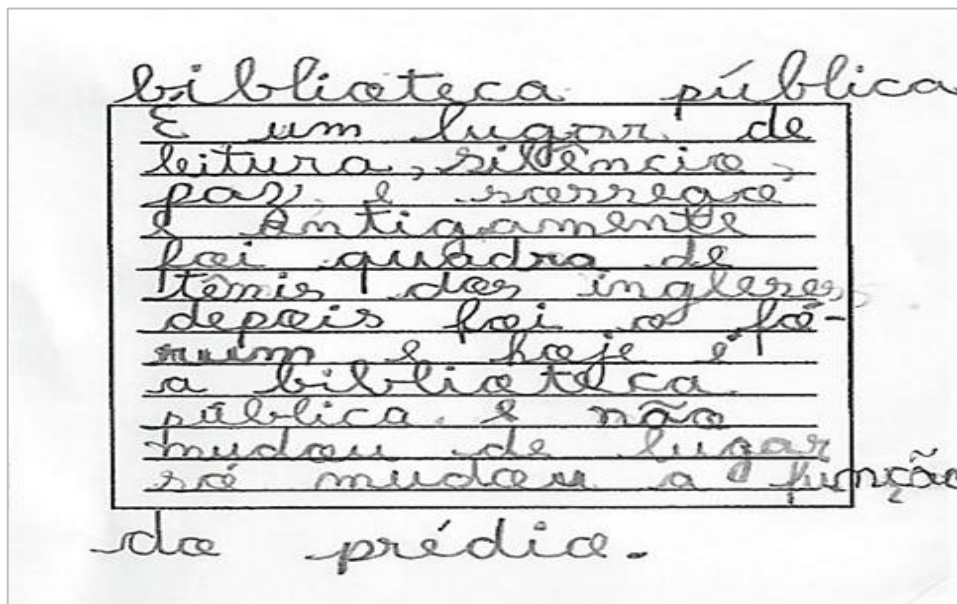 biblioteca pública
É um lugar de
leitura, silêncio,
paz, e sossego
e Antigamente
foi quadra de
tênis dos ingleses
depois foi o fó-
rum e hoje é
a biblioteca
pública e não
mudou de lugar
só mudou a função
do prédio.